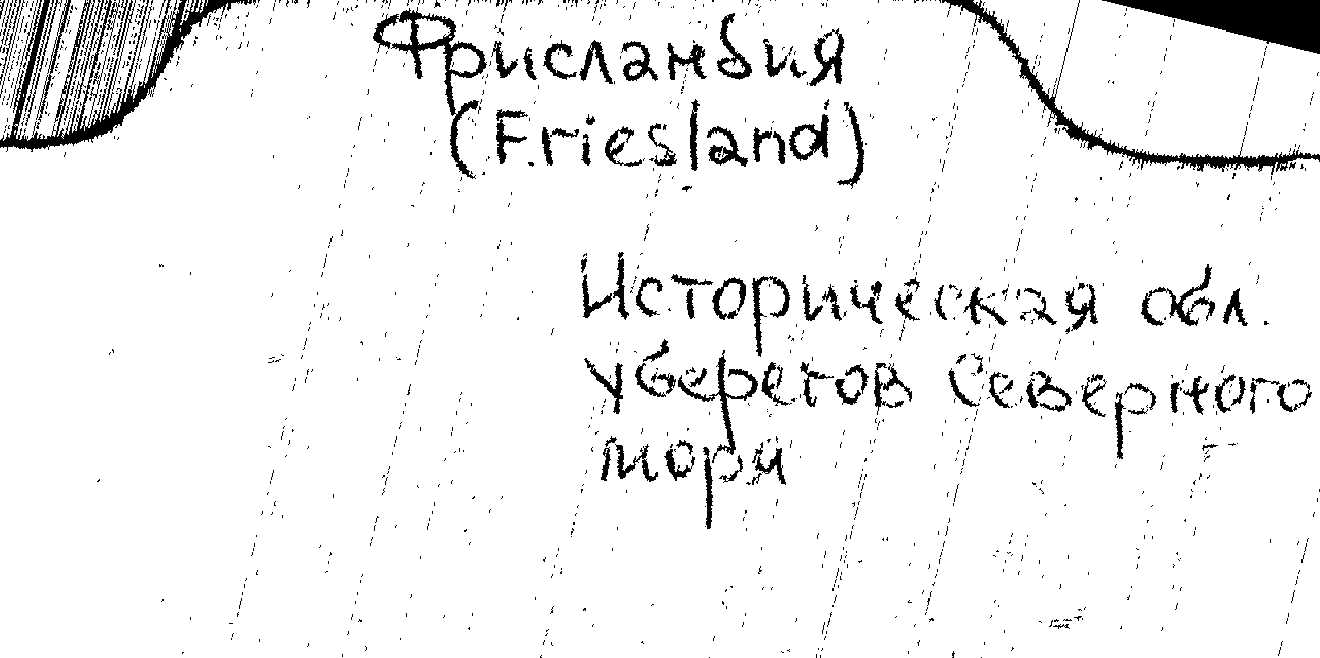 Фрисландия
(Friesland)
Историческая обл.
у берегов Северного
моря